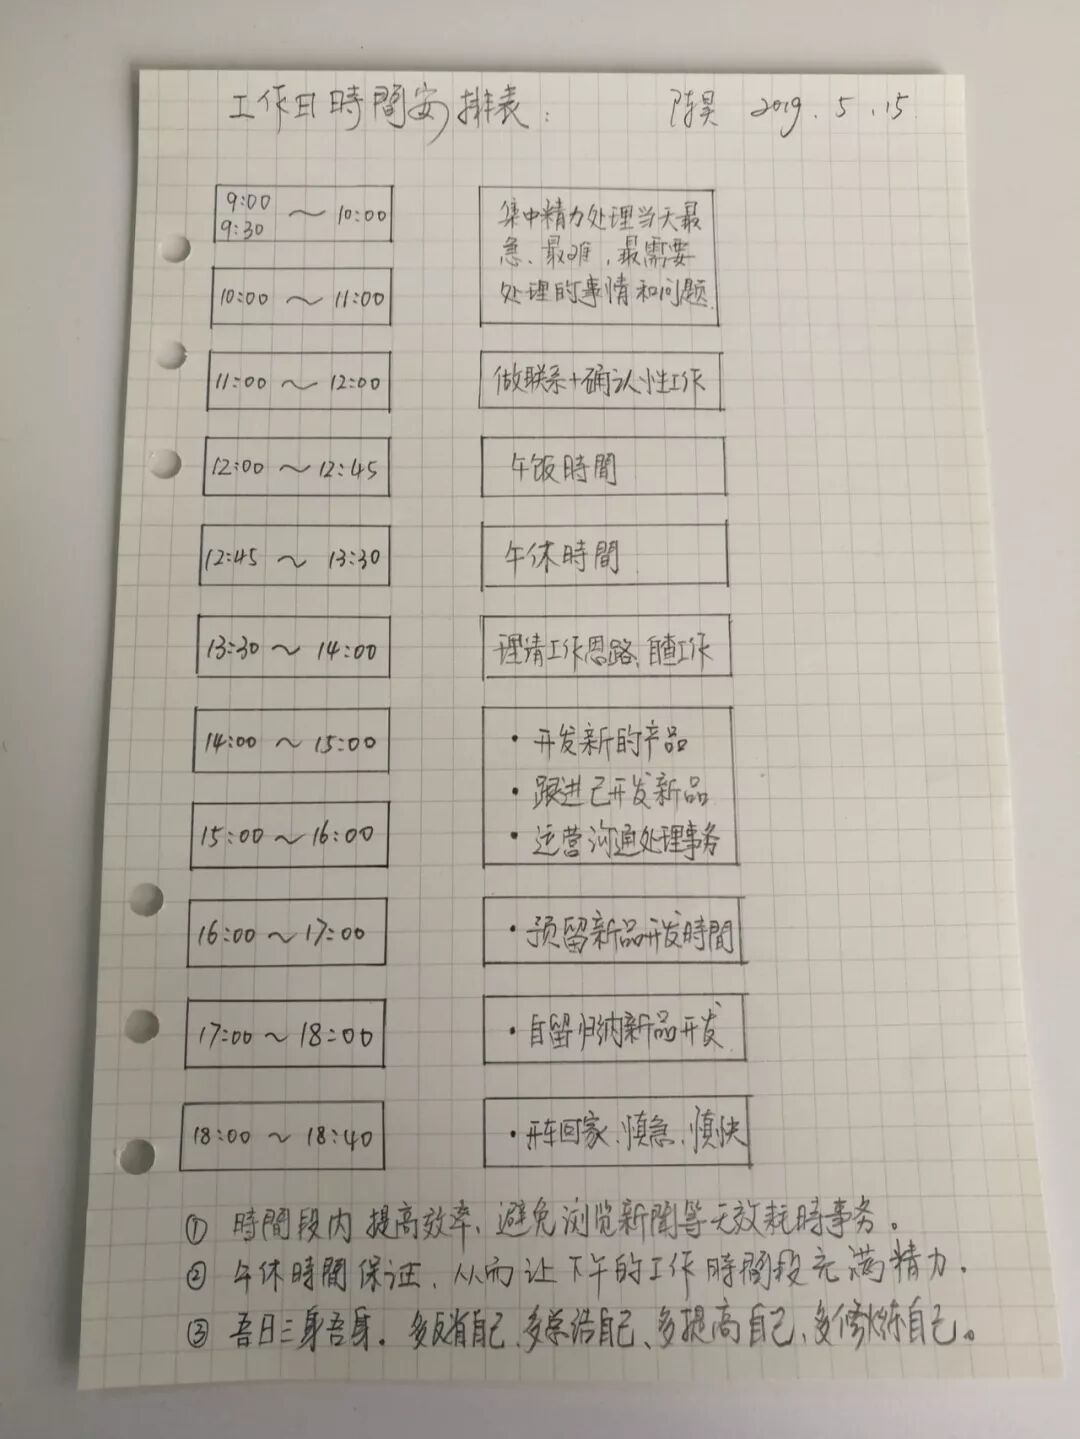 工作日時間安排表： 陈昊 2019.5.15.
9:00
9:30 ～ 10:00
集中精力处理当天最
急、最难，最需要
处理的事情和问题.
10:00 ～ 11:00
11:00 ～ 12:00
做联系+确认性工作
12:00 ～ 12:45
午饭時間
12:45 ～ 13:30
午休時間
13:30 ～ 14:00
理请工作思路、自查工作
14:00 ～ 15:00
・开发新的产品
・跟进已开发新品
15:00 ～ 16:00
・运营沟通处理事务
16:00 ～ 17:00
・预留新品开发時間
17:00 ～ 18:00
・自留归纳新品开发.
18:00 ～ 18:40
・开车回家、慎急、慎快
① 時間段内提高效率、避免浏览新聞等无效耗時事务.
② 午休時間保证、从而让下午的工作時間段充满精力.
③ 吾日三身吾身. 多反省自己、多总结自己、多提高自己、多修炼自己。